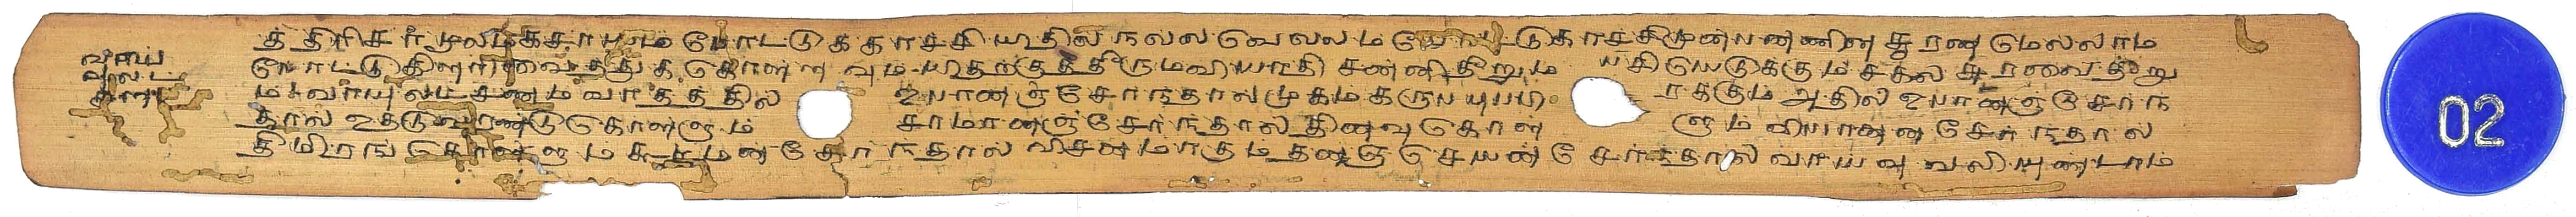 வாய்
த்திரிகர்முலமகசாயாம் போட்டுக காச்சியதில் நல்ல வெல்லம் போட்டுகாச்சிமுன்பணணின சூரணமெல்லாம
போட்டுகிளறிவைத்துக கொள்ளவும் யிதற்குத்தீருமவியாதி சன்னிதீறும் பசியெடுக்கும் சகல சுரவைதீறு
ம் வாயுவட சணம் வாதத்தில் உபானஞ்சேர்ந்தால்முகம்கருபபுபபி றக்கும் அதில் உபானஞ்சேர்ந
தால் உதடுவரண்டுகொள்ளும் சாமானஞ்சேர்ந்தால் தினவு கொள் ளும் வியானன் சேர்ந்தால்
திமிரங் கொள்ளும் கூர்மன் சேர்ந்தால் விசனமாகும் தனஞ்செயன் சேர்ந்தால் வாய்வு வலியுண்டாம்
02